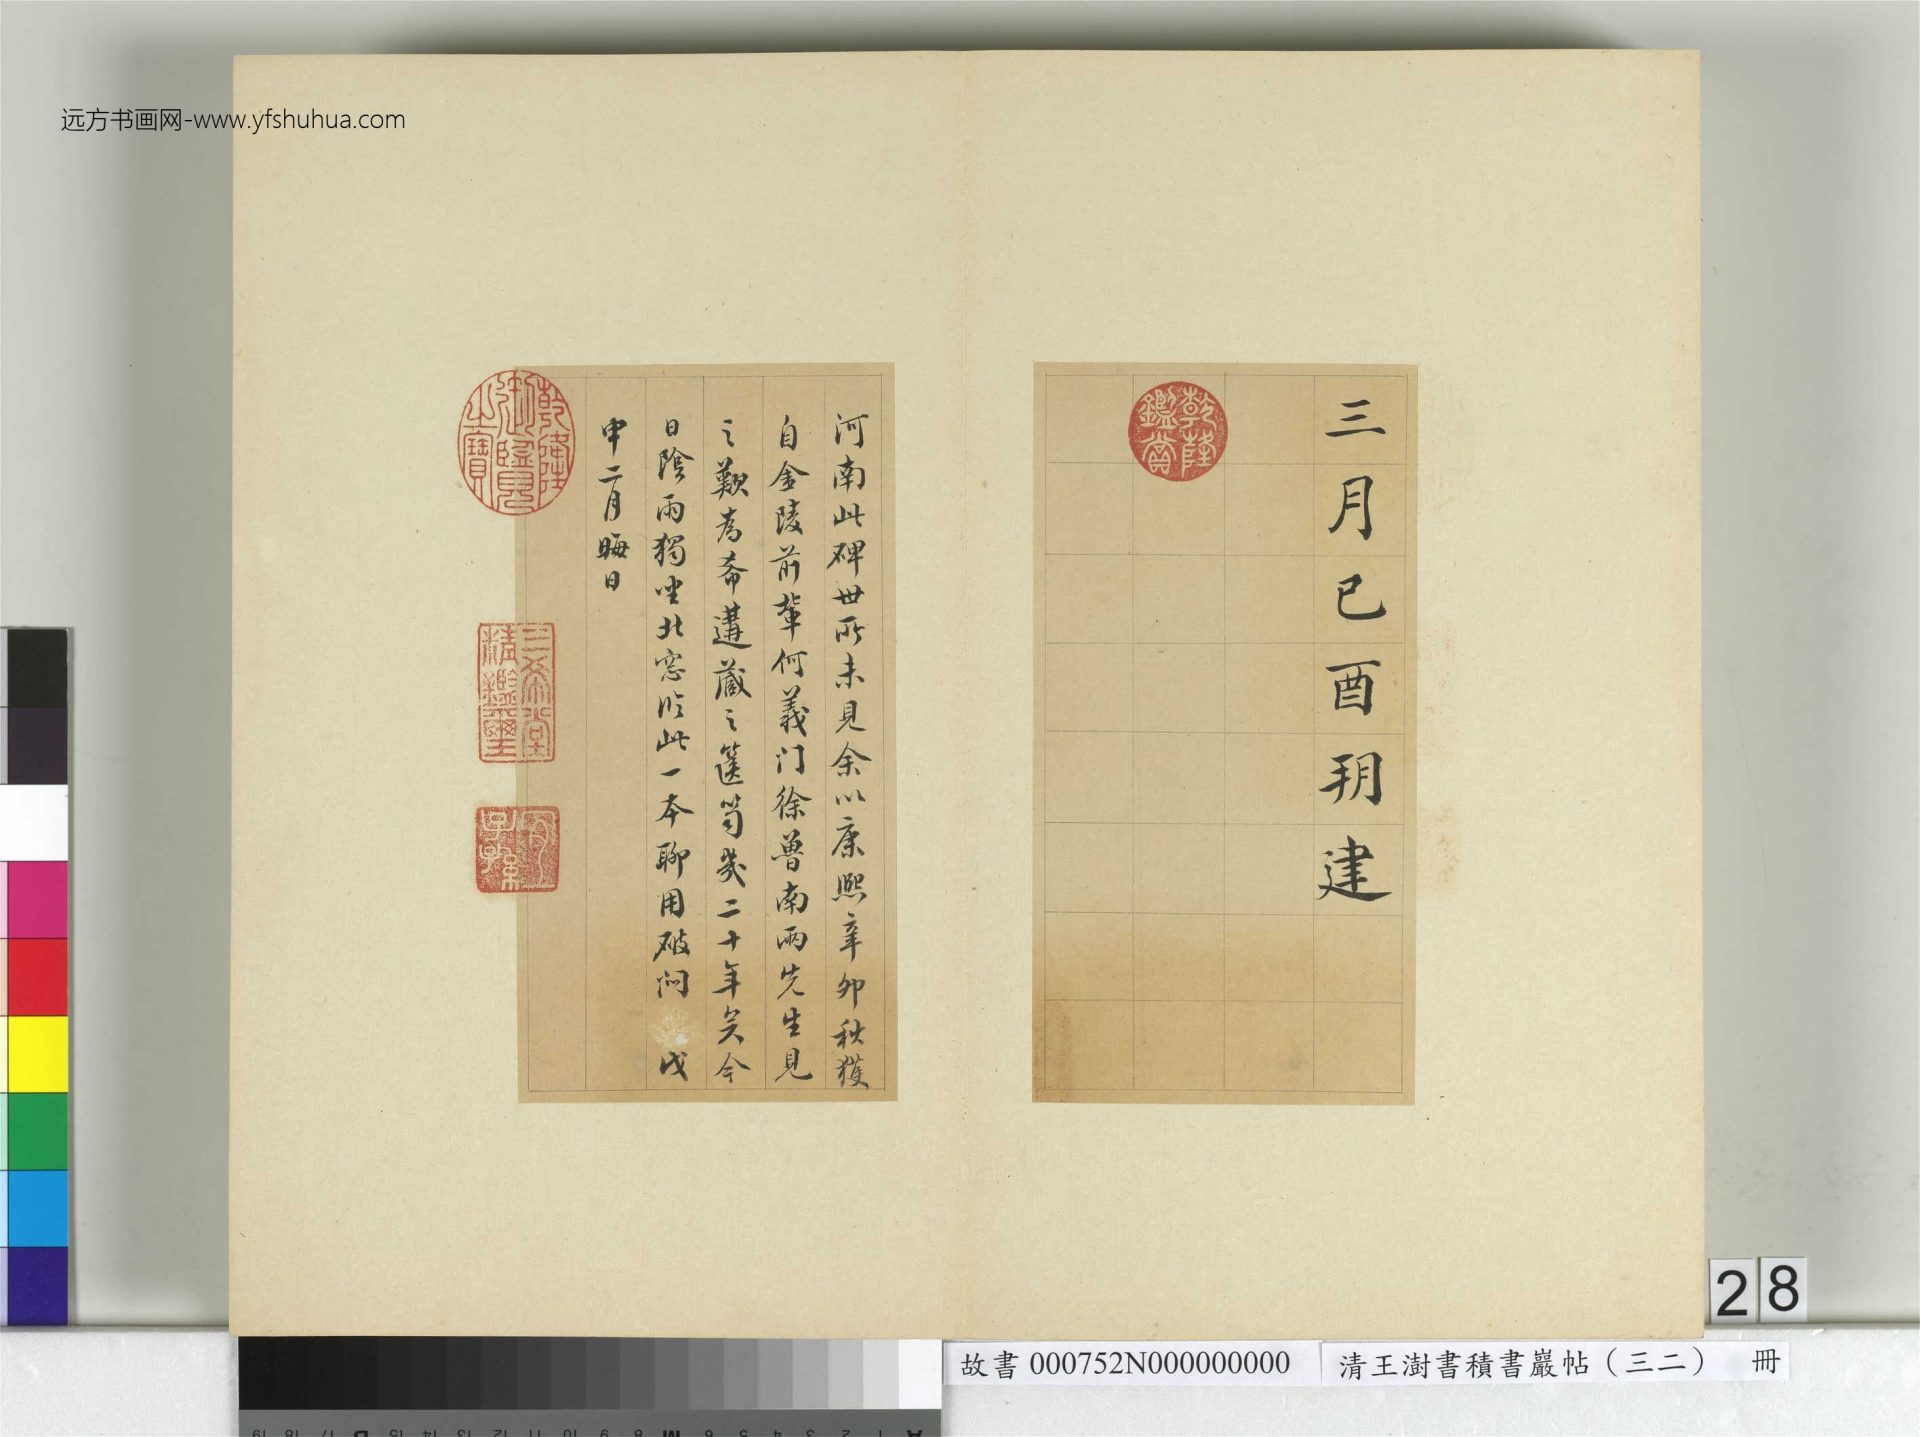 远方书画网-www.yfshuhua.com
三月己酉玥建
乾隆
鑑賞
河南此碑世所未見余以康熙辛卯秋獲
自金陵前輩何義门徐魯南兩先生見
之歎為希遘藏之篋笥幾二十年矣今
日陰雨獨坐北窓临此一本聊用破闷 戊
申二月晦日
乾隆
御覽
之寶
三希堂
精鑑璽
宜
子孫
28
故書 000752N000000000
清王澍書積書巖帖（三二） 冊